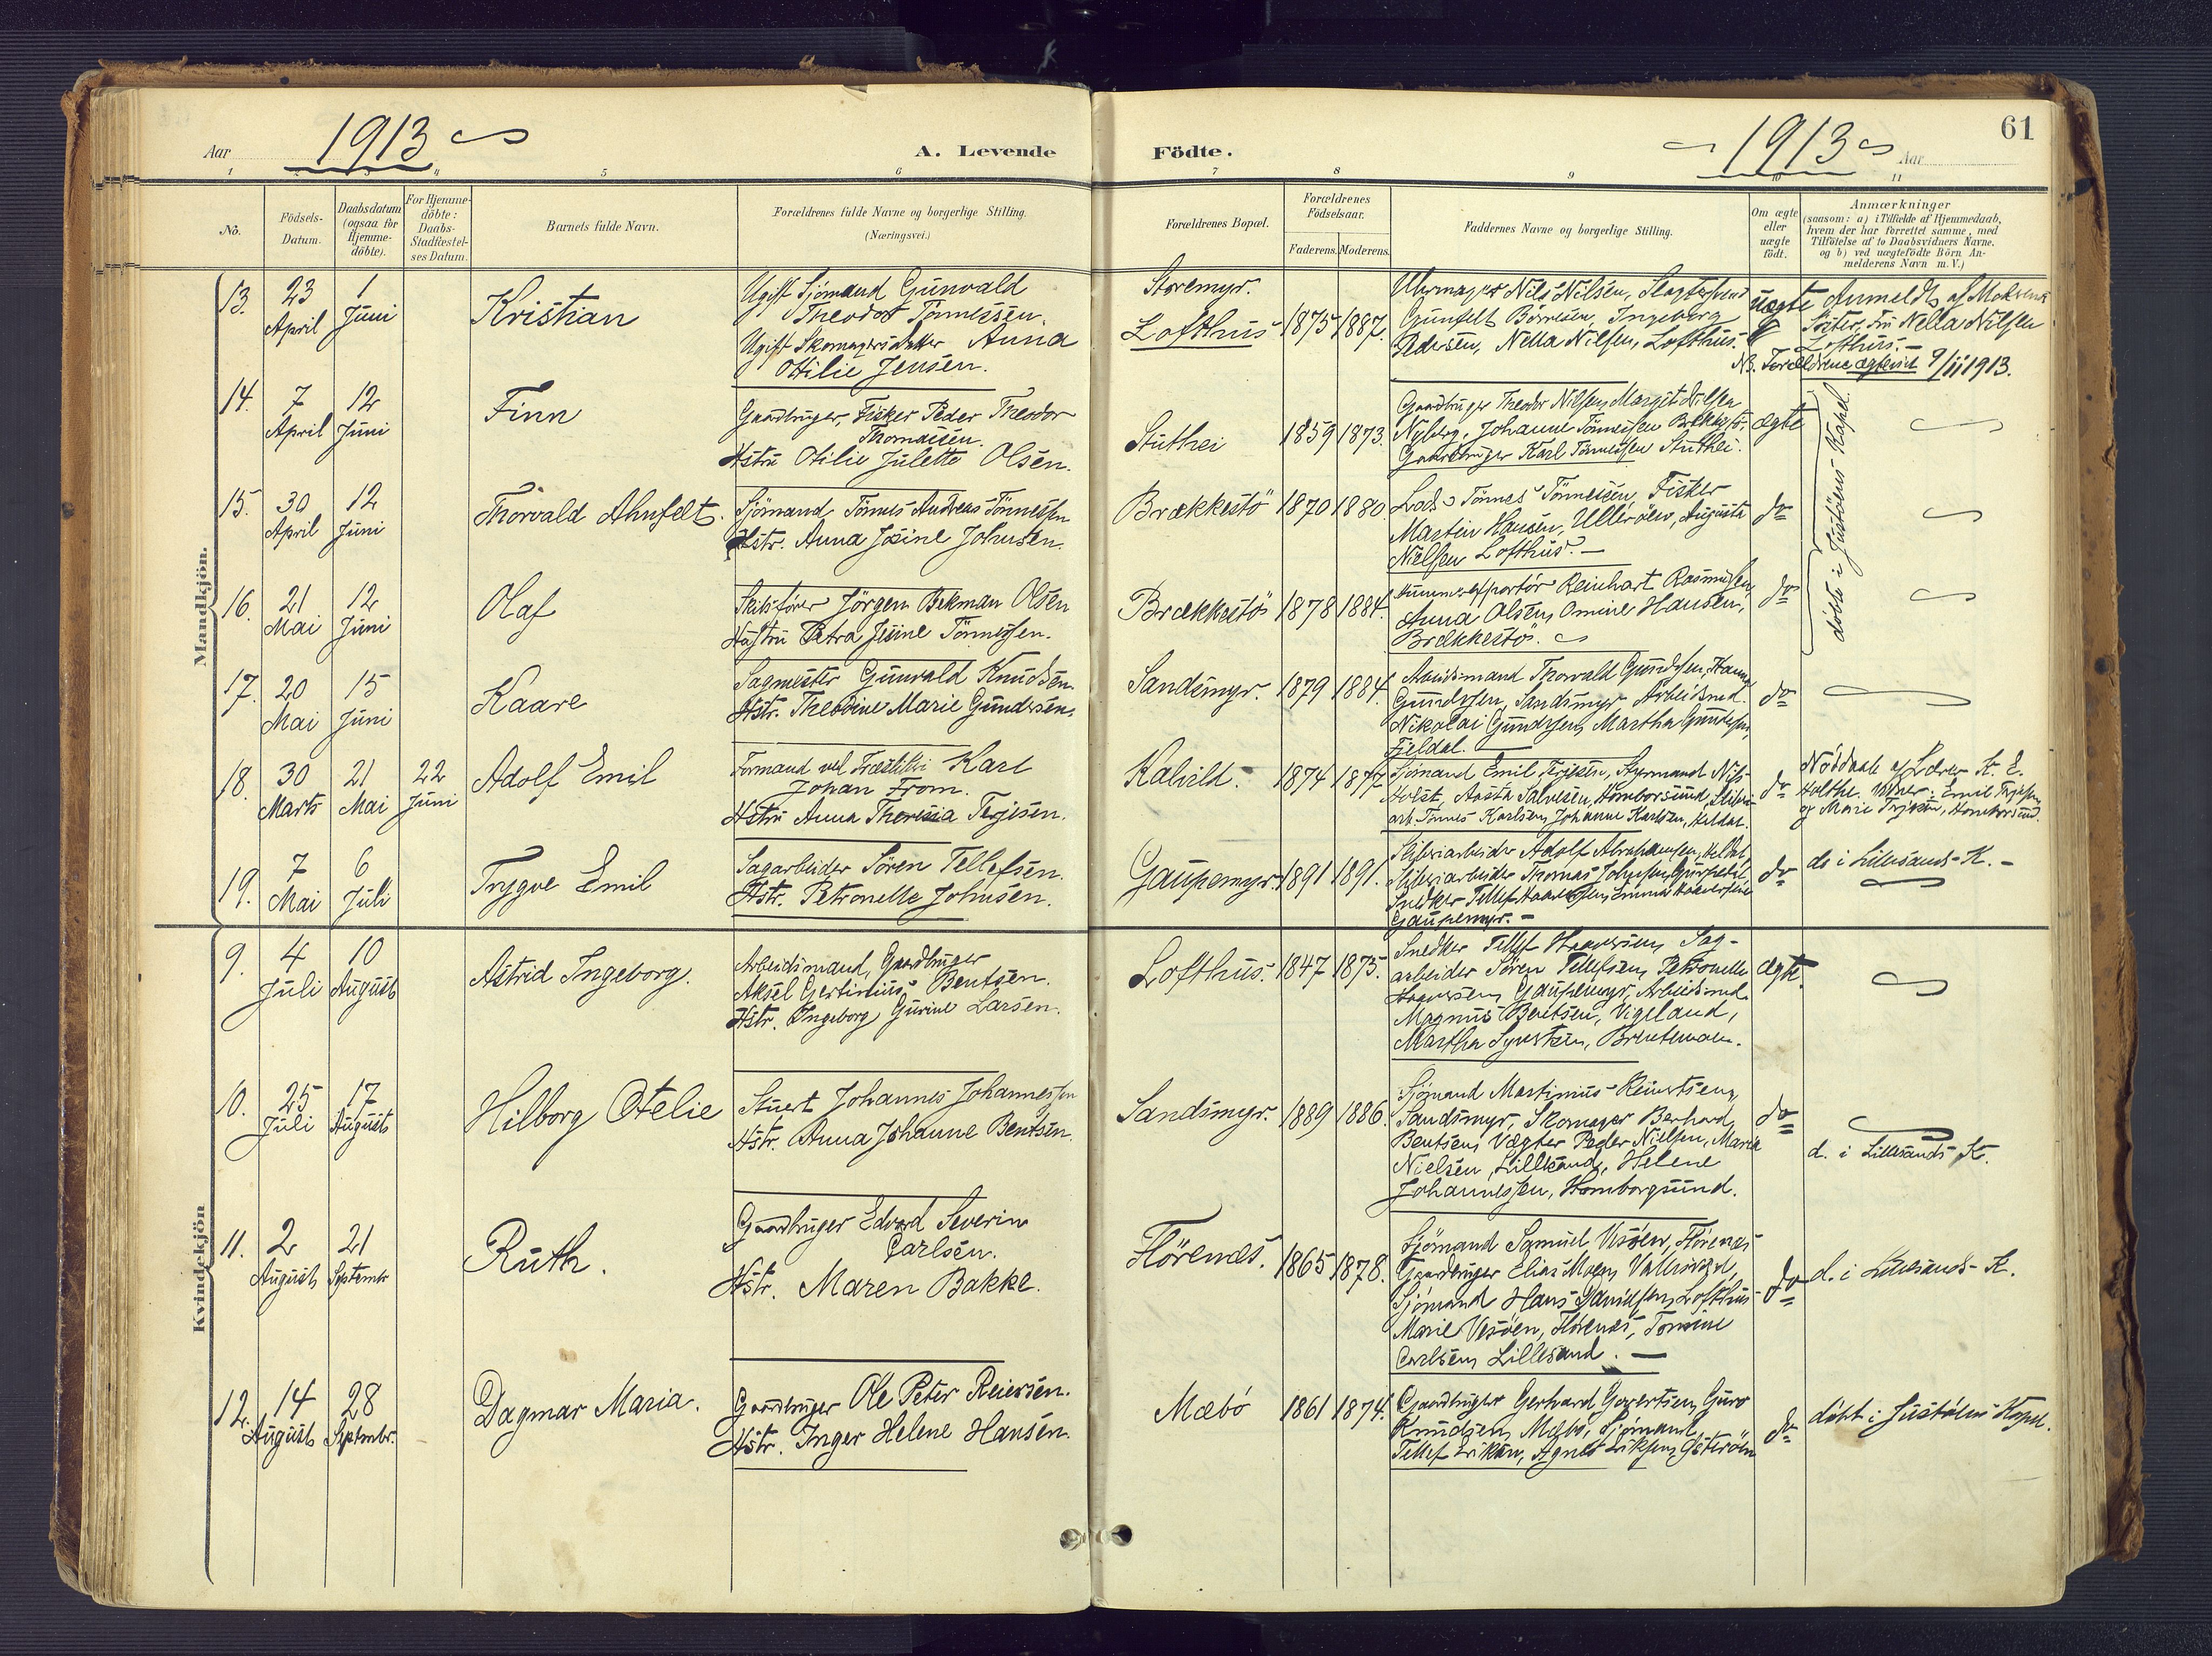 Aar 1913
A. Levende Födte.
1913 Aar
61
1 2 3 4 5 6 7 8 9 10 11
No.
Födsels-
Datum.
Daabsdatum
(ogsaa for
Hjemme-
döbte).
For Hjemme-
döbte:
Daabs-
Stadfæstel-
ses Datum.
Barnets fulde Navn.
Forældrenes fulde Navne og borgerlige Stilling.
(Næringsvei.)
Forældrenes Bopæl.
Forældrenes
Födselsaar.
Faderens. Moderens.
Faddernes Navne og borgerlige Stilling.
Om ægte
eller
uægte
födt.
Anmærkninger
(saasom: a) i Tilfælde af Hjemmedaab,
hvem der har forrettet samme, med
Tilföielse af to Daabsvidners Navne.
og b) ved uægtefödte Börn An-
melderens Navn m. V.)
Mandkjön.
13. 23 April 1 Juni Kristian
Ugift Sjömand Gunvald
Theodor Tönnessen.
Ugift Skomagersdatter Anna
Otilie Jensen.
Storemyr.
Lofthus 1875 1887.
Uhrmager Nils Nilsen,
Ingeborg
Pedersen, Nella Nilsen, Lofthus.
uægte
Anmeldt af Moderens
Söster, Fru Nella Nilsen
Lofthus.
NB. Forældrene ægteviet 9/11 1913.
14. 7 April 12 Juni Finn
Gaardbruger, Fisker Peder Theodor
Thomassen.
Hstru Otilie Julette Olsen.
Stuthei 1859 1873.
Gaardbruger Theodor Nilsen, Margit Nilsen
Nyberg, Johanne Tönnessen Brekkestö.
Gaardbruger Karl Tönnessen Stuthei.
ægte
döbte i Justöens Kapel.
15. 30 April 12 Juni Thorvald Ahnfelt.
Sjömand Tönnes Andreas Tönnessen
Hstr. Anna Josine Johnsen.
Brækkestö 1870 1880.
Lods Tönnes Tönnessen, Fisker
Martin Hansen, Ulleröen, Augusta
Nielsen Lofthus.
do
16. 21 Mai 12 Juni Olaf
Skibsförer Jörgen Bekman Olsen
Hustru Petra Tönnessen.
Brækkestö 1878 1884.
Reinhart Rasmussen,
Anna Olsen, Omine Hansen,
Brækkestö.
do
17. 20 Mai 15 Juni Kaare
Sagmester Gunvald Knudsen
Hstr. Theodine Marie Gundersen.
Sandsmyr. 1879 1884.
Arbeidsmand Thorvald Gundersen, Hanna
Gundersen, Sandsmyr Arbeidsmd.
Nikolai Gundersen, Martha Gundersen,
Fjeldal.
do
18. 30 Marts 21 Mai 22 Juni Adolf Emil
Formand ved Træsliberi Karl
Johan From.
Hstru Anna Theresia Terjesen.
Kalvild. 1874 1877
Sjömand Emil Terjesen, Styrmand Nils
Holst, Aasta Salvesen, Homborsund, Sliberi
arb. Tönnes Karlsen, Johanne Karlsen, Heldal.
do
Nöddaab af Lærer K. E.
Holthe. Vidner: Emil Terjesen
og Marie Terjesen, Homborsund.
19. 7 Mai 6 Juli Trygve Emil
Sagarbeider Sören Tellefsen.
Hstr. Petronelle Johnsen.
Gaupemyr. 1891 1891.
Sliberiarbeider Adolf Abrahamsen, Heldal,
Sliberiarbeider Thomas Johnsen,
Snedker Tellef
Gaupemyr.
do
do i Lillesands-K.
Kvindekjön
9. 4 Juli 10 August Astrid Ingeborg.
Arbeidsmand, Gaardbruger
Aksel Gertinius Bentsen.
Hstr. Ingeborg Gurine Larsen.
Lofthus. 1847 1875.
Snedker Tellef Haaversen, Sag-
arbeider Sören Tellefsen, Petronelle
Haaversen, Gaupemyr, Arbeidsmd.
Magnus Bentsen, Vigeland,
Martha Syvertsen, Brentemoen.
ægte.
10. 25 Juli 17 August Hilborg Otelie
Stuert Johannes Johannessen
Hstr. Anna Johanne Bentsen.
Sandsmyr. 1889 1886.
Sjömand Martinius Reiertsen,
Sandsmyr, Skomager Berhard
Bentsen, Vægter Peder Nielsen, Maria
Nielsen, Lillesand, Helene
Johannessen, Homborsund.
do
d. i Lillesands K.
11. 2 August 21 Septembr Ruth.
Gaardbruger Edvard Severin
Carlsen.
Hstr. Maren Bakke.
Flörenes. 1865 1878.
Sjömand Samuel Vesöen, Flörenes
Gaardbruger Elias Moen,
Sjömand Hans Danielsen, Lofthus
Marie Vesöen, Flörenes, Tomine
Carlsen, Lillesand.
do
d. i Lillesands-K.
12. 14 August 28 Septmbr. Dagmar Maria.
Gaardbruger Ole Peter Reiersen.
Hstr. Inger Helene Hansen.
Mæbö 1861 1874.
Gaardbruger Gerhard Govertsen, Guro
Knudsen, Mæbö, Sjömand
Tellef Eriksen, Agnes Eriksen,
do
döbt i Justöens Kapel.